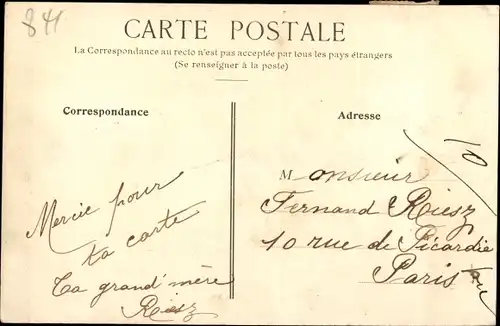 841
CARTE POSTALE
La Correspondance au recto n'est pas acceptée par tous les pays étrangers
(Se renseigner à la poste)
Correspondance
Adresse
Mercie pour
ta carte
Ta grand'mère
Riesz
10
Monsieur
Fernand Riesz
10 rue de Picardie
Paris